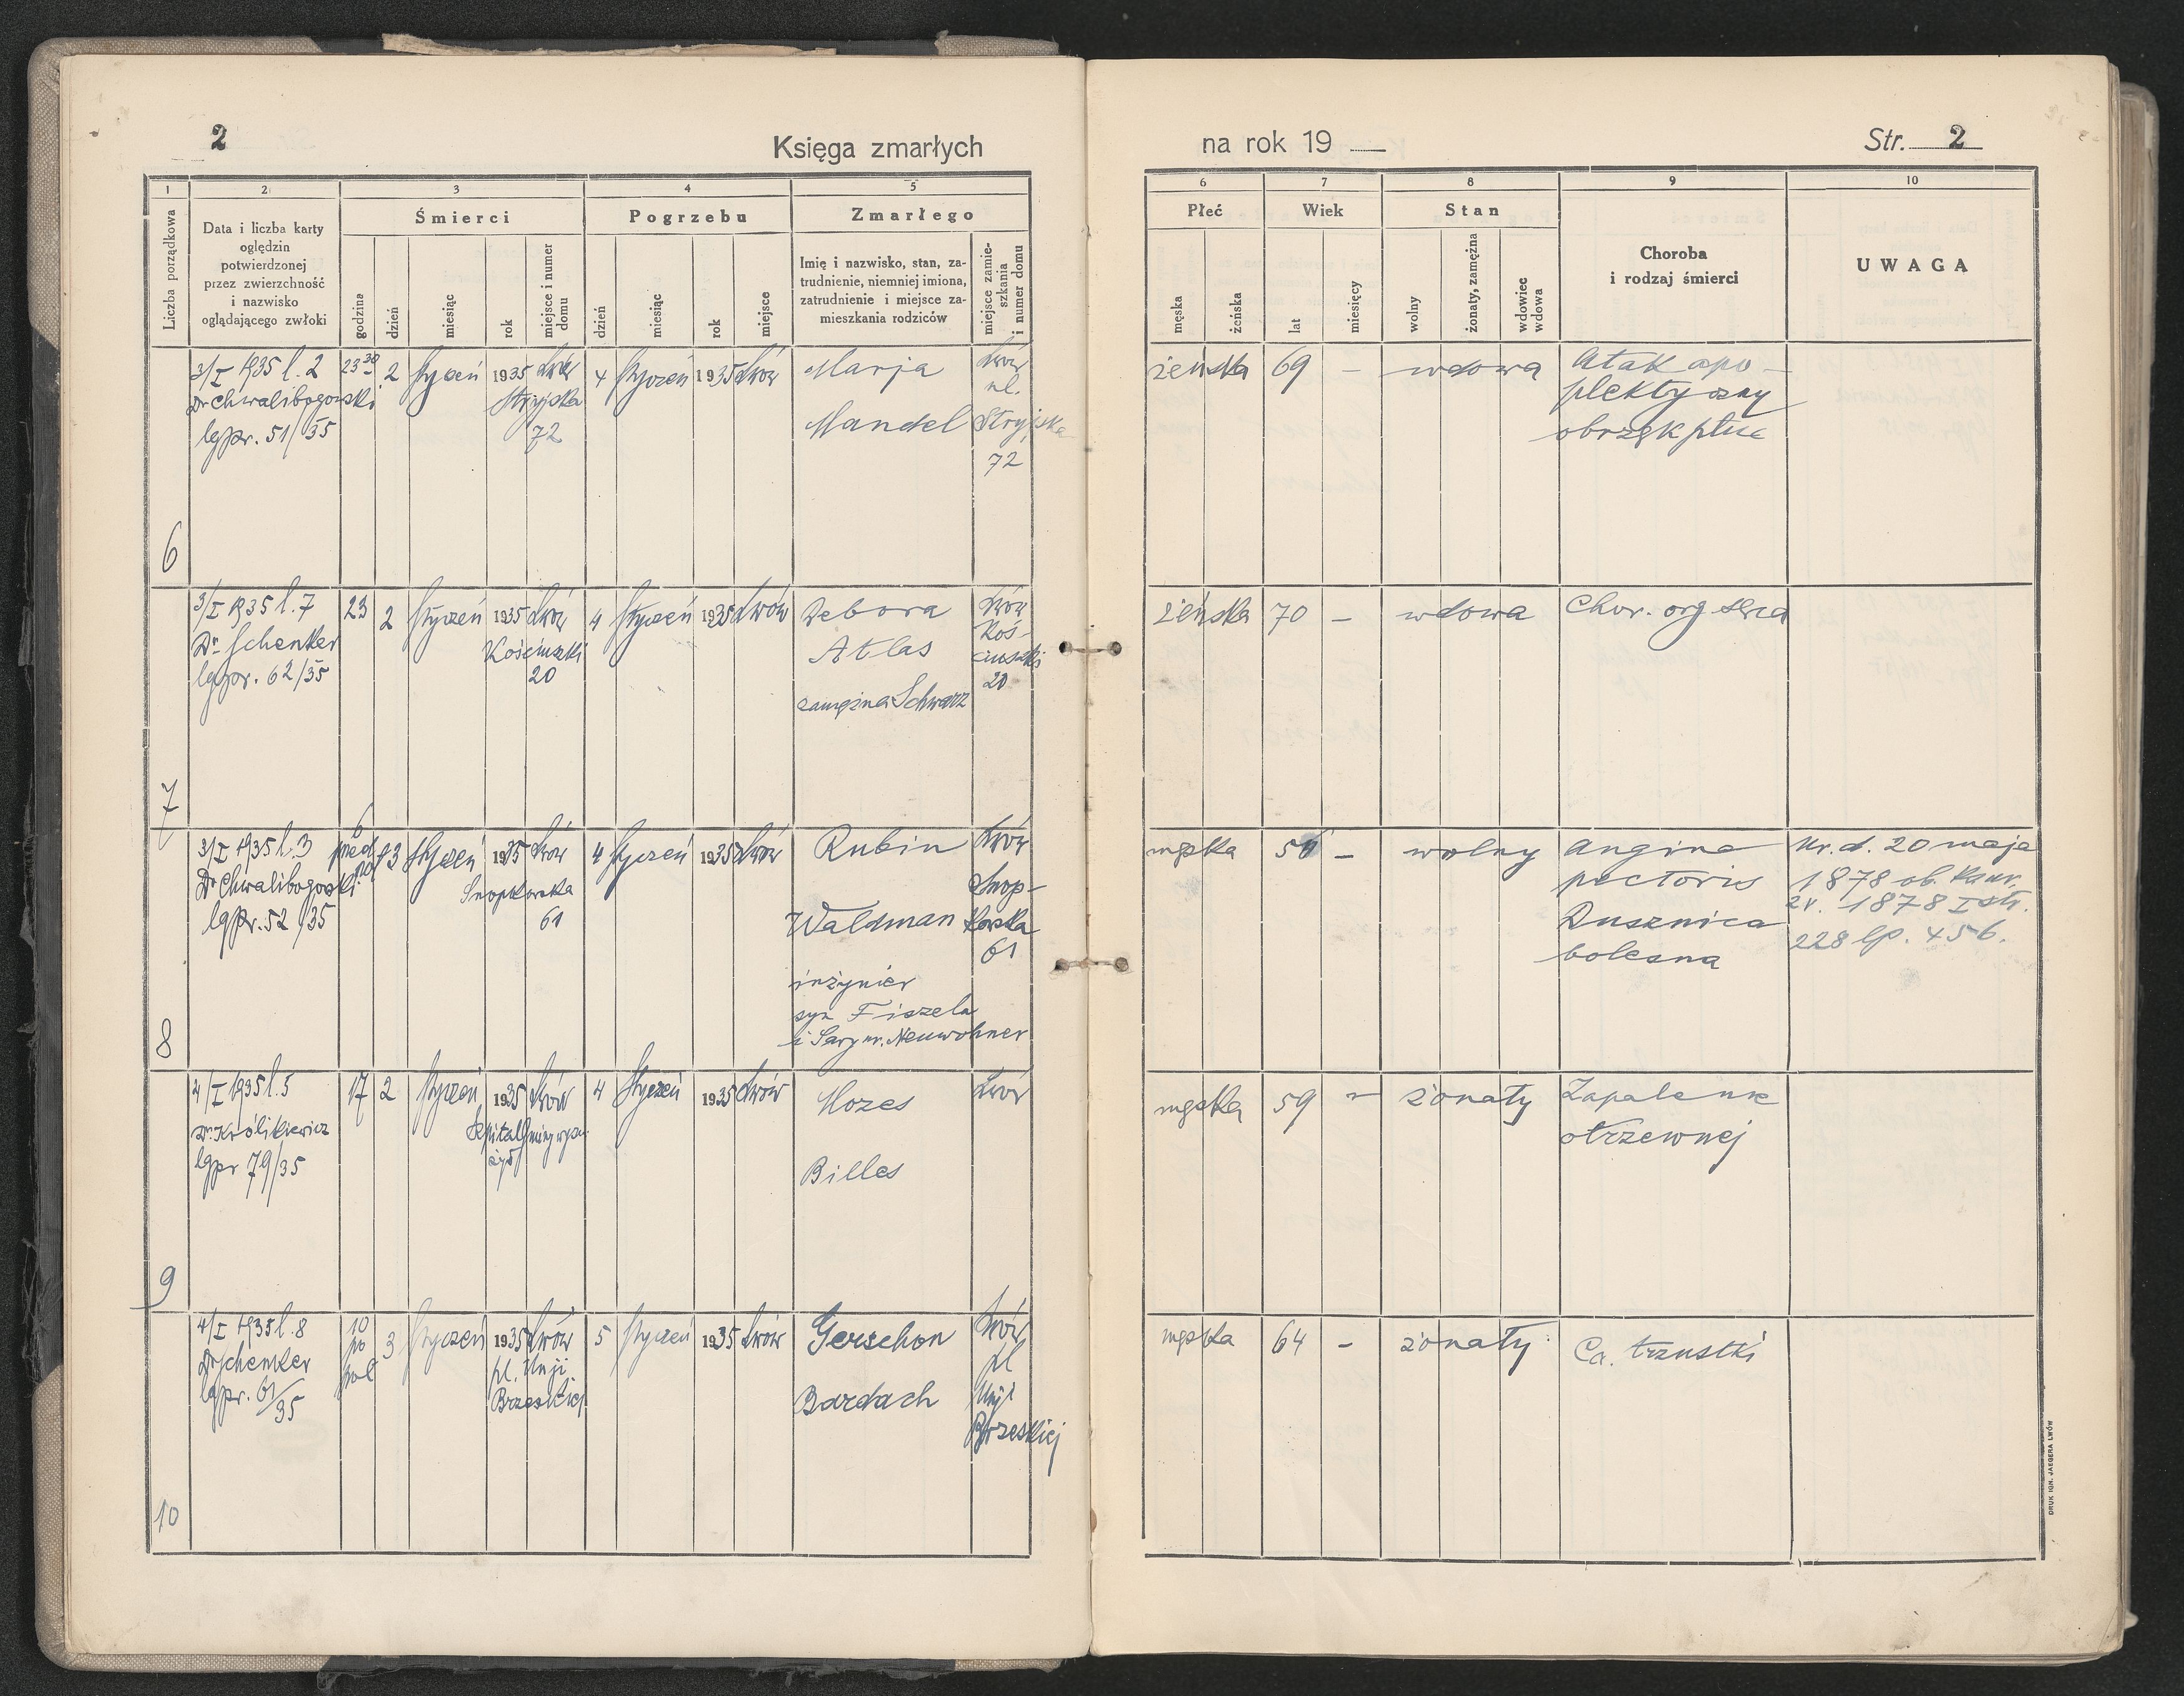 2
Księga zmarłych
1
2
3
4
5
Liczba porządkowa
Data i liczba karty
oględzin
potwierdzonej
przez zwierzchność
i nazwisko
oglądającego zwłoki
Śmierci
godzina
dzień
miesiąc
rok
miejsce i numer
domu
Pogrzebu
dzień
miesiąc
rok
miejsce
Zmarłego
Imię i nazwisko, stan, za-
trudnienie, niemniej imiona,
zatrudnienie i miejsce za-
mieszkania rodziców
miejsce zamie-
szkania
i numer domu
6
3/I 1935 l. 2
Dr Chwalibogowski
lgpr. 51/35
23 30
2
styczeń
1935
Lwów
Stryjska
72
4
styczeń
1935
Lwów
Marja
Mandel
Lwów
ul.
Stryjska
72
7
3/I 1935 l. 7
Dr Schenker
lgpr. 62/35
23
2
styczeń
1935
Lwów
Kościuszki
20
4
styczeń
1935
Lwów
Debora
Atlas
zamężna Schwarz
Lwów
Koś-
ciuszki
20
8
3/I 1935 l. 3
Dr Chwalibogowski
lgpr. 52/35
6
przed
poł
3
styczeń
1935
Lwów
Snopkowska
61
4
styczeń
1935
Lwów
Rubin
Waldman
inżynier
syn Fiszela
i Sary ur. Neuwohner
Lwów
Snop-
kowska
61
9
4/I 1935 l. 5
Dr. Królikiewicz
lgpr 79/35
17
2
styczeń
1935
Lwów
Szpital
4
styczeń
1935
Lwów
Mozes
Billes
Lwów
10
4/I 1935 l. 8
Dr Schenker
lgpr. 61/35
10
po
poł
3
styczeń
1935
Lwów
pl. Unji
Brzeskiej
5
styczeń
1935
Lwów
Gerschon
Bardach
Lwów
pl
Unji
Brzeskiej
na rok 19
Str. 2
6
7
8
9
10
Płeć
męska
żeńska
Wiek
lat
miesięcy
Stan
wolny
żonaty, zamężna
wdowiec
wdowa
Choroba
i rodzaj śmierci
UWAGA
żeńska
69
–
wdowa
Atak apo-
plektyczny
obrzęk płuc
żeńska
70
–
wdowa
Chor. org serca
męska
56
–
wolny
Angina
pectoris
Dusznica
bolesna
Ur. d. 20 maja
1878 ob.
1878 I str.
228 lp. 456.
męska
59
–
żonaty
Zapalenie
otrzewnej
męska
64
–
żonaty
Ca. trzustki
DRUK IGN. JAEGERA LWÓW